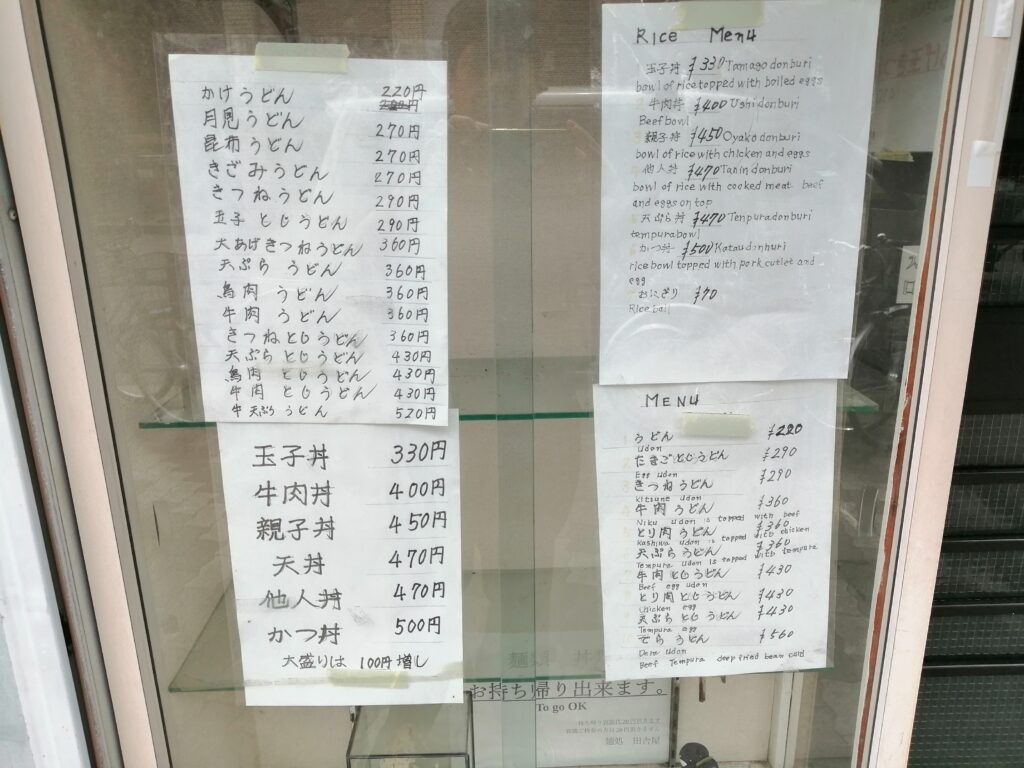 かけうどん 220円
月見うどん 270円
昆布うどん 270円
きざみうどん 270円
きつねうどん 290円
玉子とじうどん 290円
大あげきつねうどん 360円
天ぷら うどん 360円
鳥肉 うどん 360円
牛肉 うどん 360円
きつねとじうどん 360円
天ぷらとじうどん 430円
鳥肉 とじうどん 430円
牛肉 とじうどん 430円
牛天ぷら うどん 520円
玉子丼 330円
牛肉丼 400円
親子丼 450円
天丼 470円
他人丼 470円
かつ丼 500円
大盛りは 100円増し
RICE MENU
玉子丼 ¥330 Tamago donburi
bowl of rice topped with boiled eggs
牛肉丼 ¥400 Ushi donburi
Beef bowl
親子丼 ¥450 Oyako donburi
bowl of rice with chicken and eggs
他人丼 ¥470 Tanin donburi
bowl of rice with cooked meat beef
and eggs on top
天ぷら丼 ¥470 Tenpura donburi
tempura bowl
かつ丼 ¥500 Katsu donburi
rice bowl topped with pork cutlet and
egg
おにぎり ¥70
Rice ball
MENU
うどん ¥220
udon
たまごとじうどん ¥290
Egg udon
きつねうどん ¥290
kitsune udon
牛肉うどん ¥360
Niku udon is topped with beef
とり肉うどん ¥360
Kashiwa udon is topped with chicken
天ぷらうどん ¥360
Tempura udon is topped with tempura
牛肉とじうどん ¥430
Beef egg udon
とり肉とじうどん ¥430
Chicken egg
天ぷらとじうどん ¥430
Tempura egg
でらうどん ¥560
Dera udon
Beef Tempura deep fried bean curd
麺類 丼
お持ち帰り出来ます。
To go OK
麺処 田舎屋